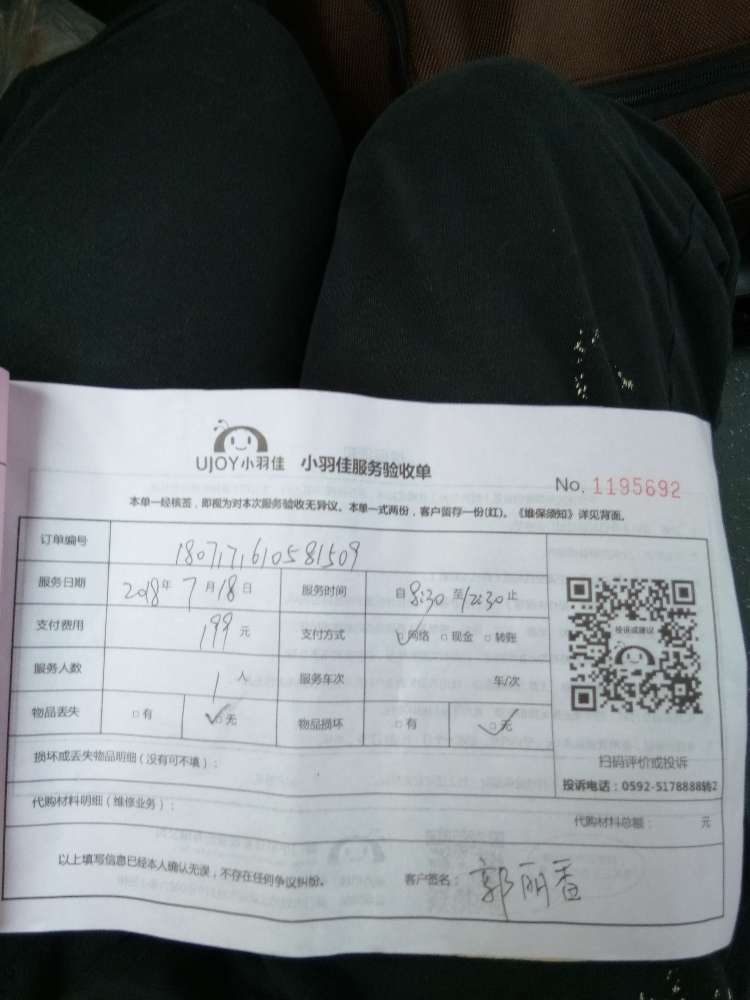 UJOY小羽佳 小羽佳服务验收单
No. 1195692
本单一经核签，即视为对本次服务验收无异议。本单一式两份，客户留存一份(红)。《维保须知》详见背面。
订单编号 1807171610581509
服务日期 2018年7月18日 服务时间 自8:30至12:30止
支付费用 199元 支付方式 ☑网络 □现金 □转账
服务人数 1人 服务车次 车/次
物品丢失 □有 ☑无 物品损坏 □有 ☑无
投诉或建议
扫码评价或投诉
投诉电话：0592-5178888转2
损坏或丢失物品明细（没有可不填）：
代购材料明细（维修业务）：
代购材料总额： 元
以上填写信息已经本人确认无误，不存在任何争议纠纷。 客户签名：郭丽香